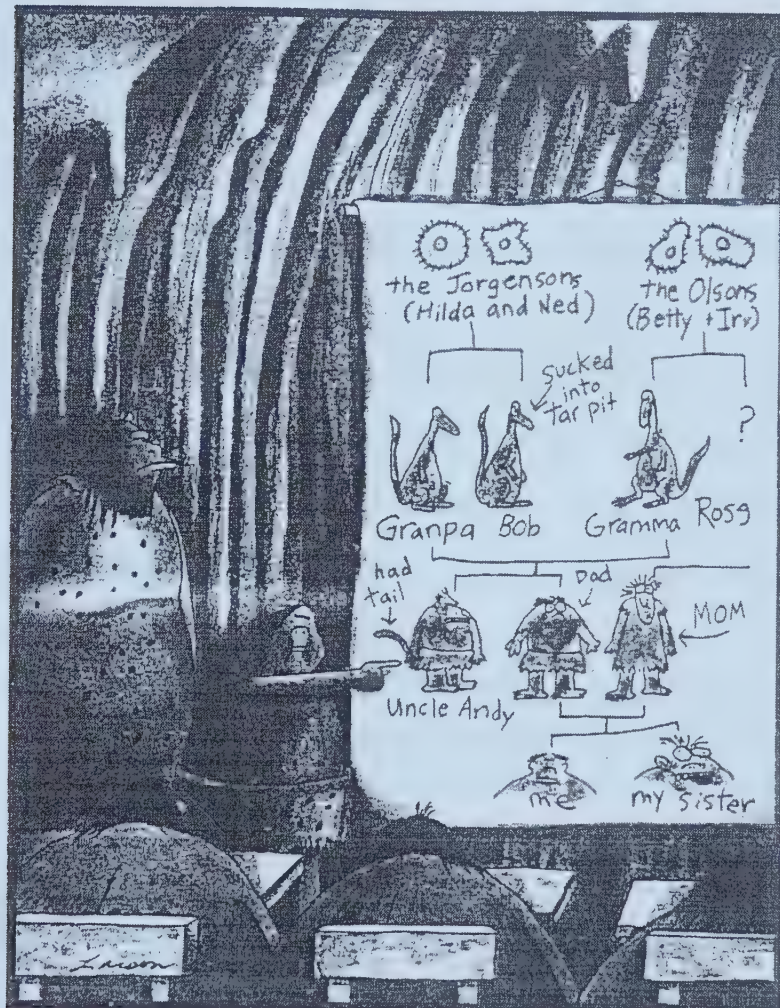 the Jorgensons
(Hilda and Ned)
the Olsons
(Betty + Irv)
sucked
into
tar pit
?
Granpa
Bob
Gramma
had
tail
Dad
MOM
Uncle Andy
me
my sister
Larson